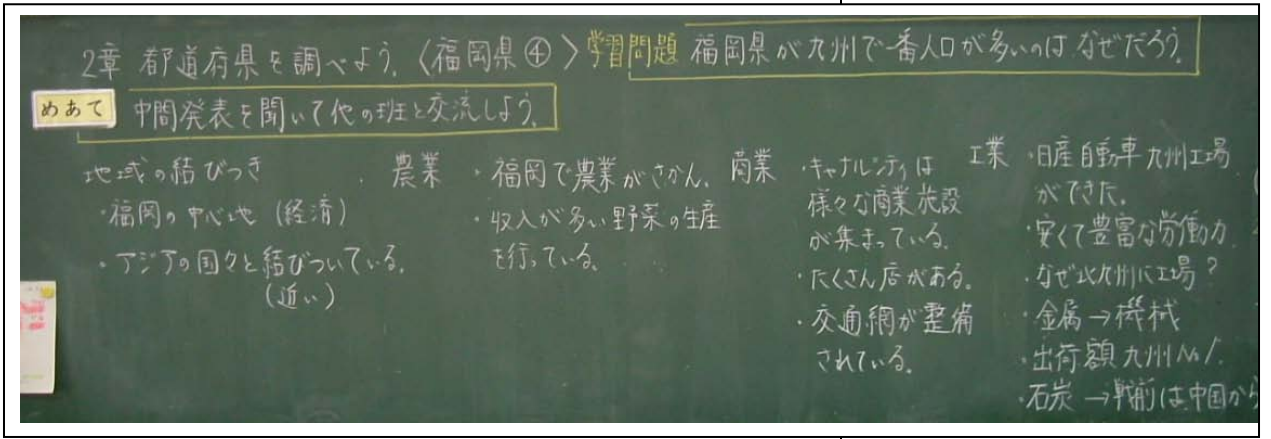 2章 都道府県を調べよう。〈福岡県④〉学習問題 福岡県が九州で一番人口が多いのはなぜだろう。
めあて 中間発表を聞いて他の班と交流しよう。
地域の結びつき
・福岡の中心地(経済)
・アジアの国々と結びついている。
(近い)
農業
・福岡で農業がさかん。
・収入が多い野菜の生産
を行っている。
商業
・キャナルシティは
様々な商業施設
が集まっている。
・たくさん店がある。
・交通網が整備
されている。
工業
・日産自動車九州工場
ができた。
・安くて豊富な労働力
・なぜ北九州に工場?
・金属→機械
・出荷額九州No1.
・石炭→戦前は中国から